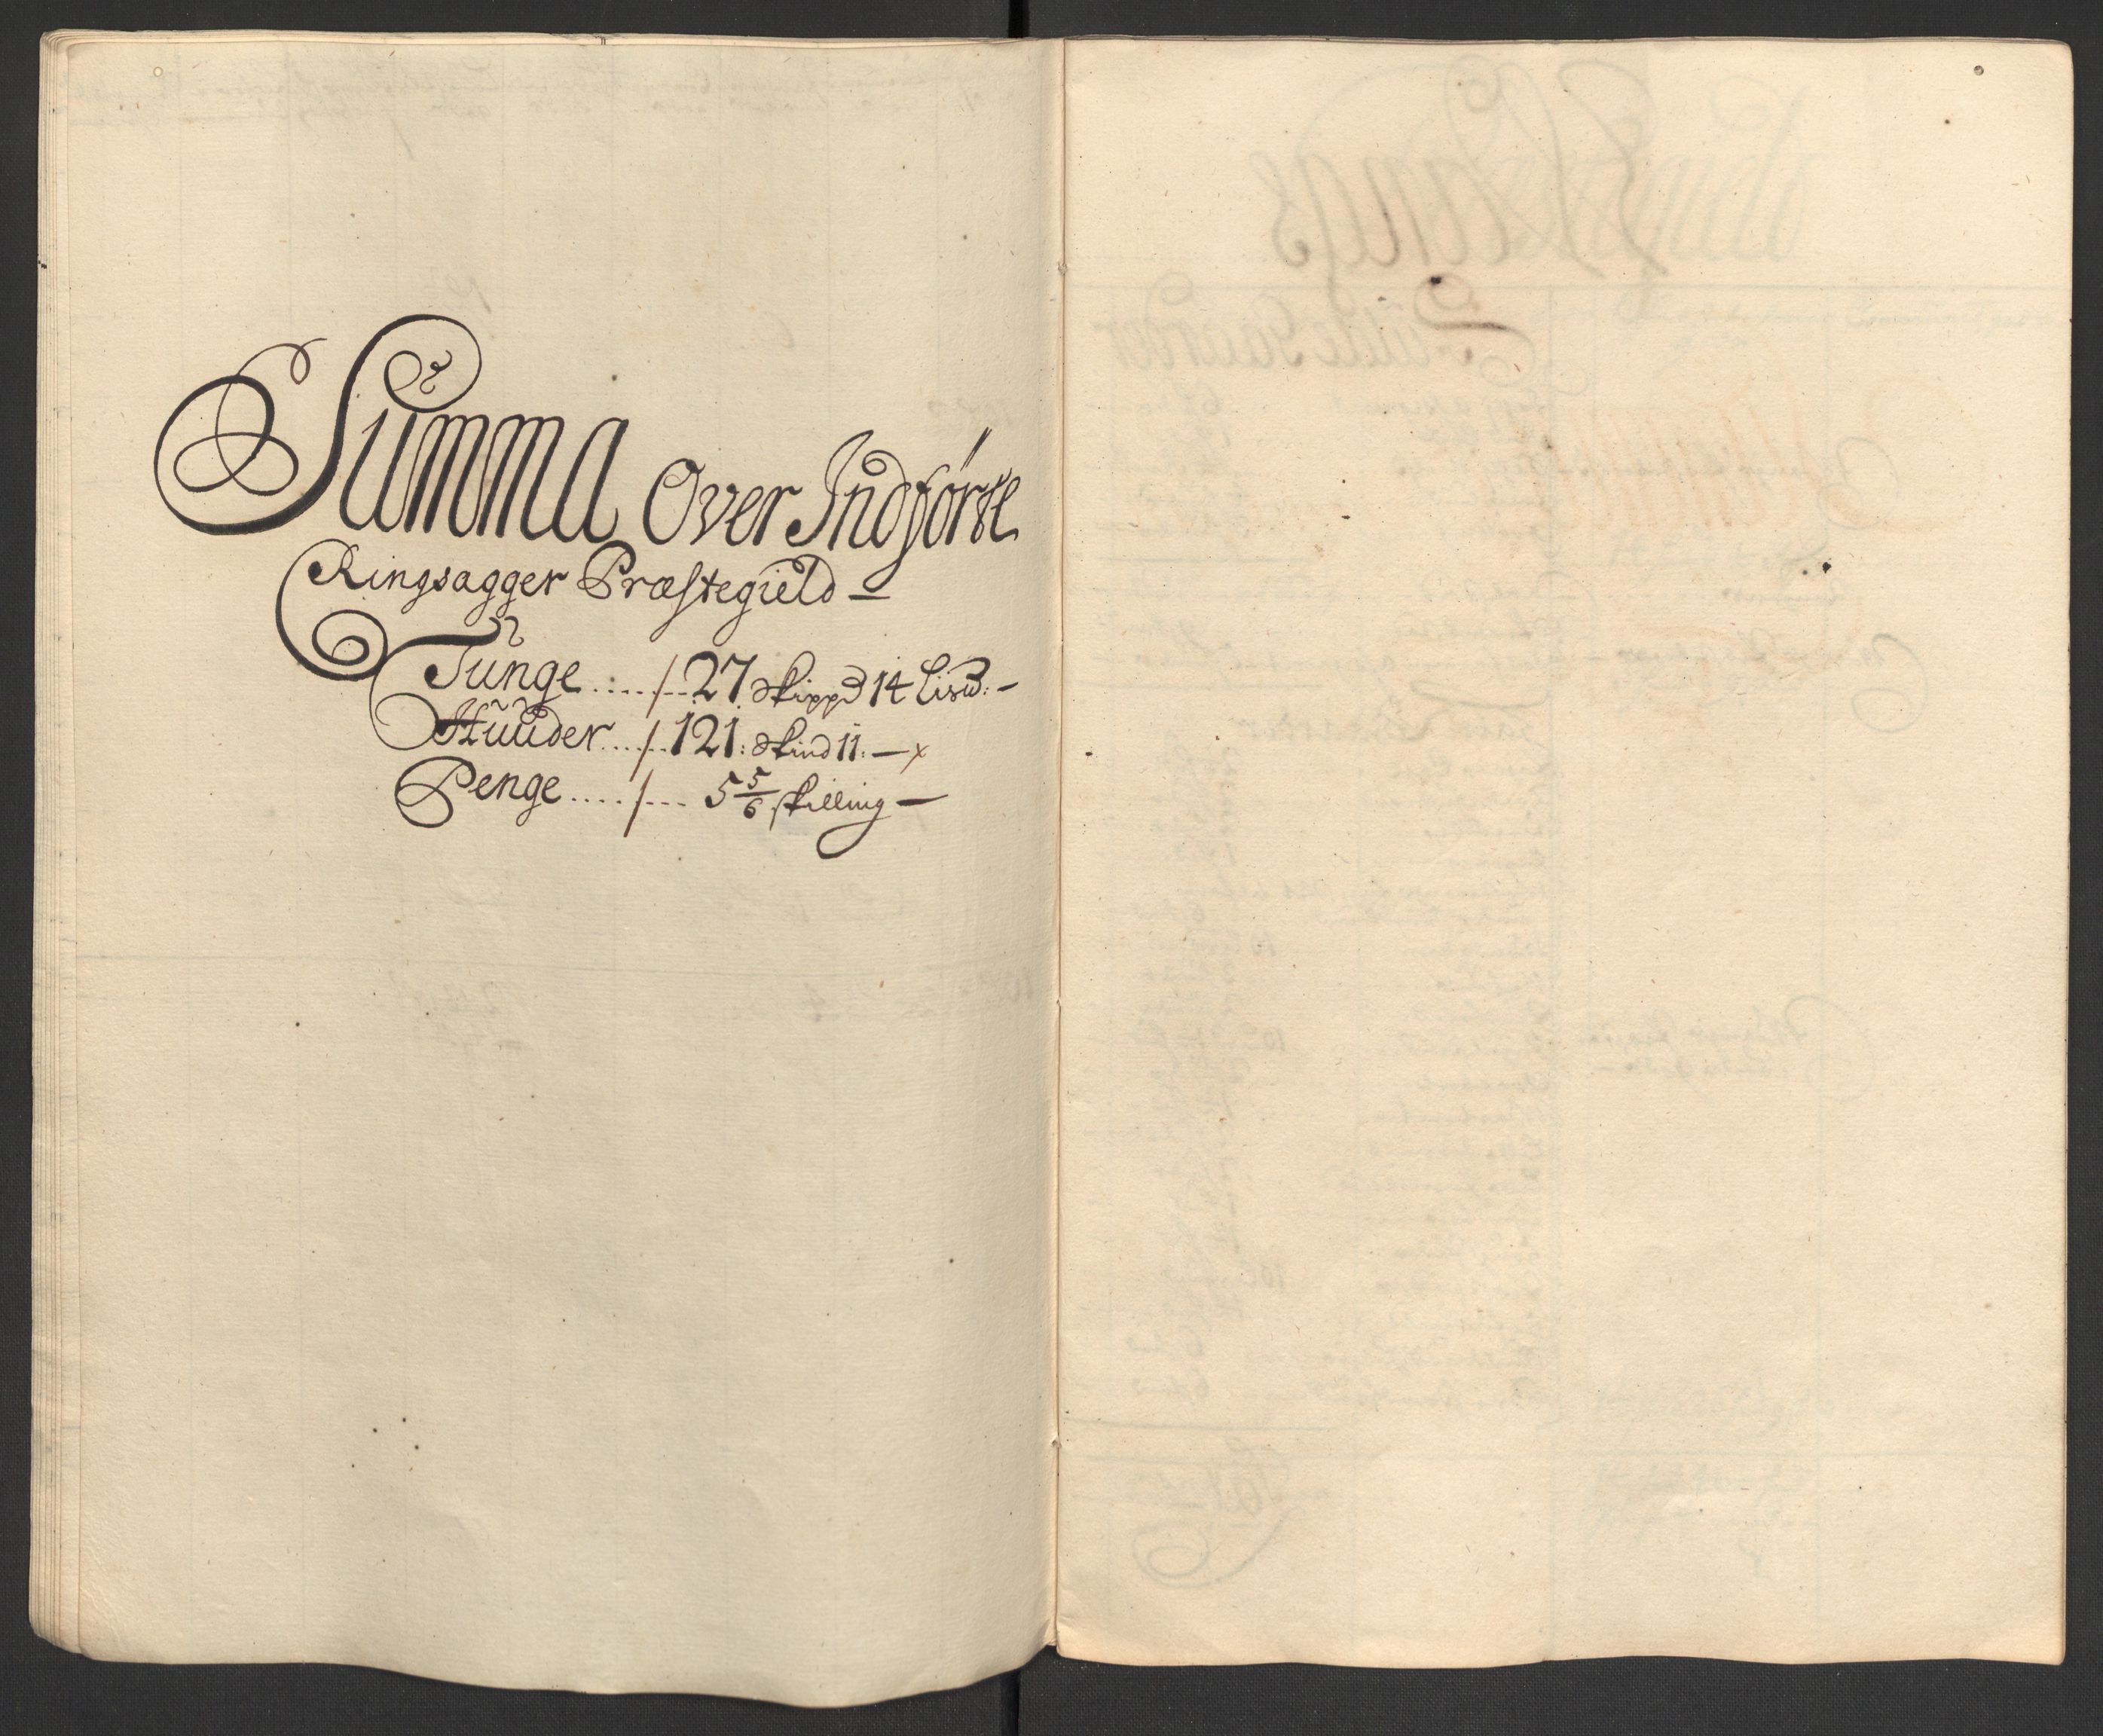 Summa Over Indførte
Ringsagger Præstegield —
Tunge ...../.. 27. Skippd 14 Lisu: —
Huuder...../. 121: Skind 11: — x
Penge..../... 5 5/6 skilling —